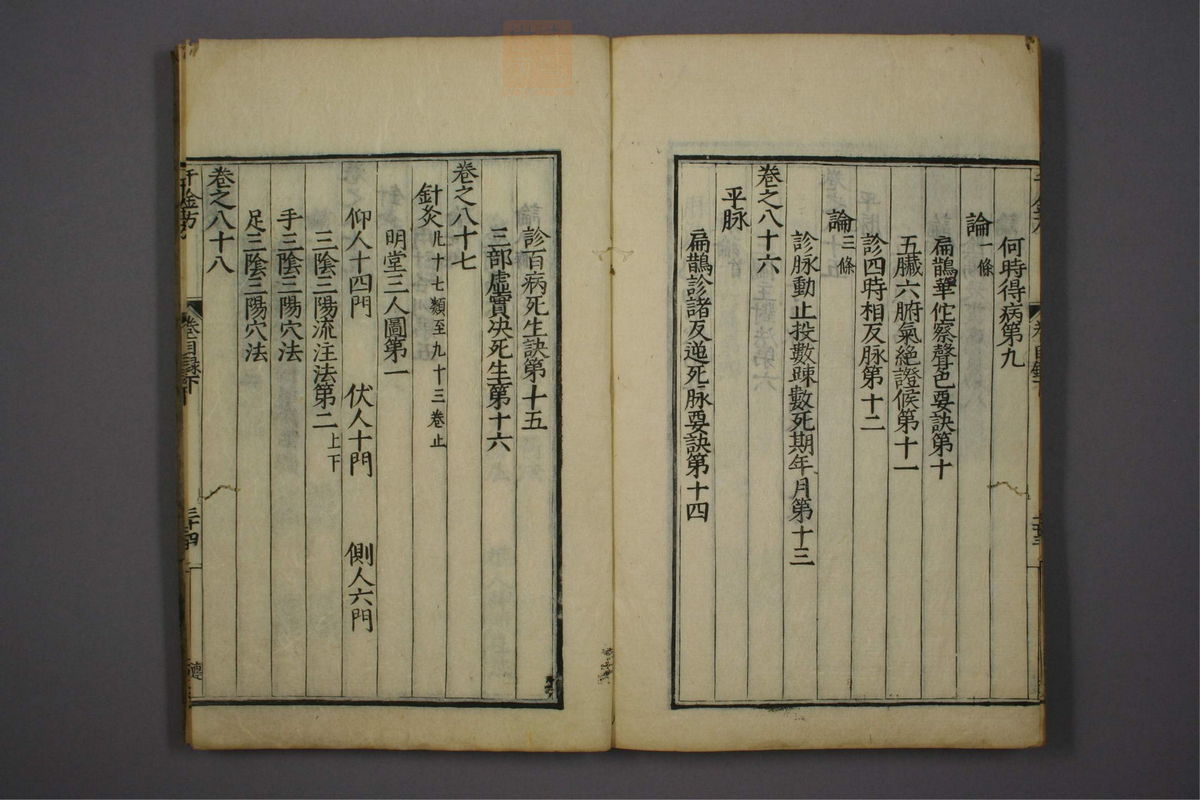 何時得病第九
論一條
扁鵲華佗察聲色要訣第十
五臟六腑氣絕證候第十一
診四時相反脉第十二
論三條
診脉動止投數踈數死期年月第十三
卷之八十六
平脉
扁鵲診諸反逆死脉要訣第十四
診百病死生訣第十五
三部虛實决死生第十六
卷之八十七
針灸凡十七類至九十三卷止
明堂三人圖第一
仰人十四門 伏人十門 側人六門
三陰三陽流注法第二上下
手三陰三陽穴法
足三陰三陽穴法
卷之八十八
千金方 卷目録下 三十四